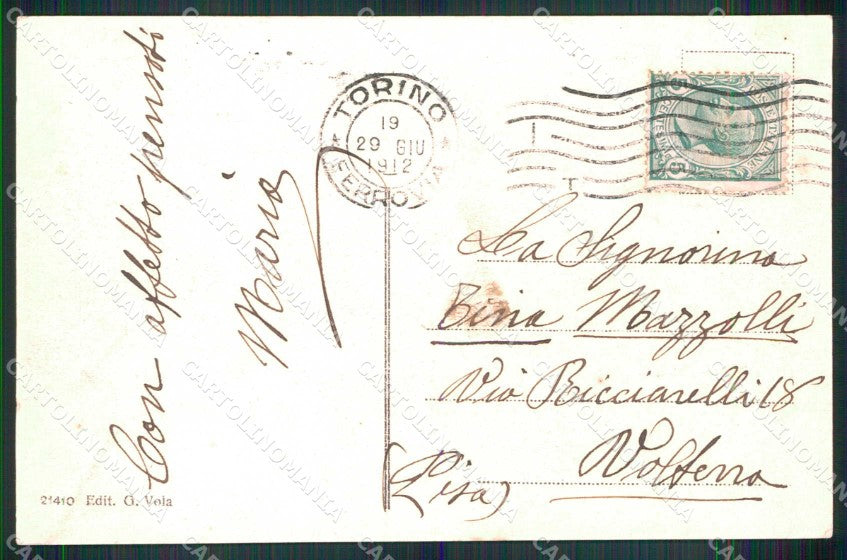 Con affetto pensoti
Maria
TORINO
19
29 GIU
1912
FERROVIA
La Signorina
Bina Mazzolli
Via Ricciarelli 18
Volterra
(Pisa)
21410 Edit. G. Vola
CARTOLINOMANIA